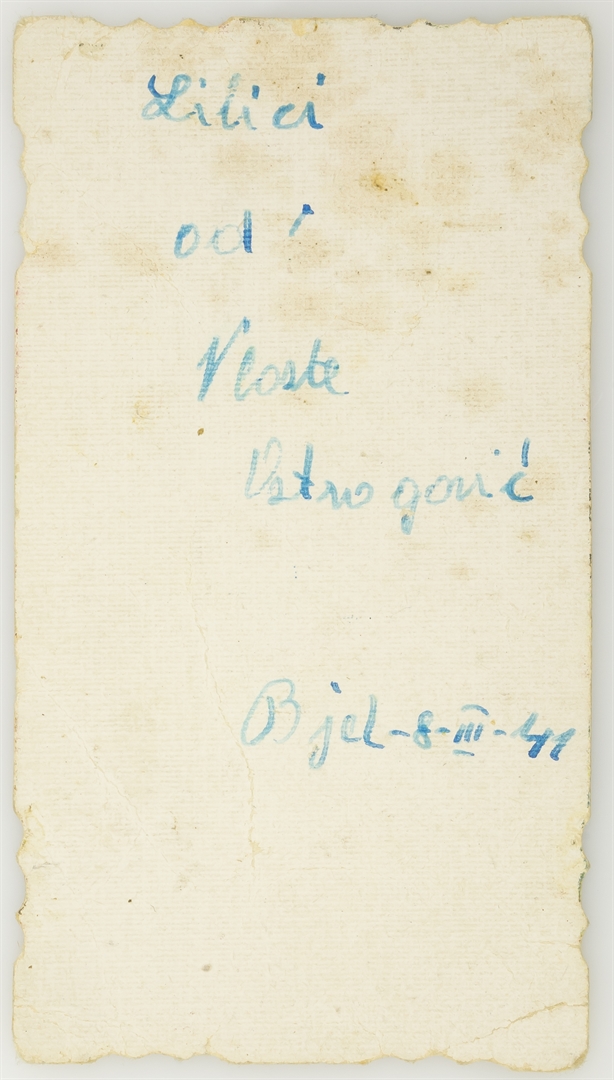 Lilici
od
Vlaste
Ostrogović
Bjel-8-III-41